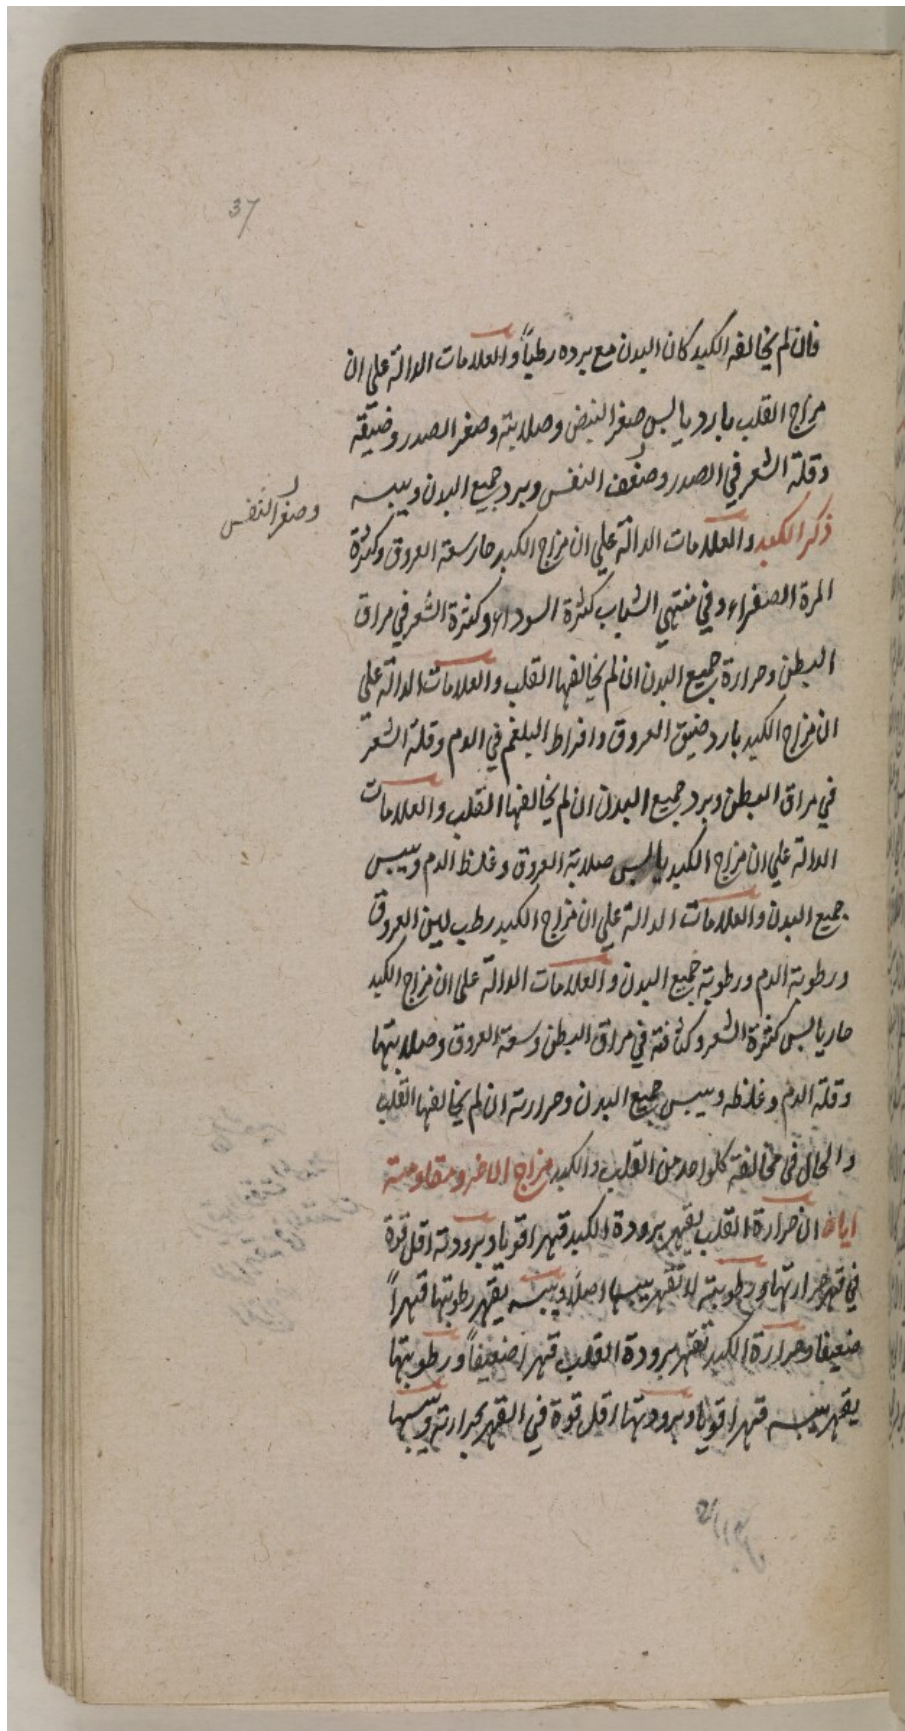 37
فان لم يخالفه الكبد كان البدن مع برده رطباً والعلامات الدالة على ان
مزاج القلب بارد يابس صغر النبض وصلابته وصغر الصدر وضيقه
وقلة الشعر في الصدر وضعف النفس وبرد جميع البدن ويبسه
وصغر النفس
ذكر الكبد والعلامات الدالة علي ان مزاج الكبد حار سعة العروق وكثرة
المرة الصفراء وفي منتهي الشباب كثرة السوداء وكثرة الشعر في مراق
البطن وحرارة جميع البدن ان لم يخالفها القلب والعلامات الدالة علي
ان مزاج الكبد بارد ضيق العروق وافراط البلغم في الدم وقلة الشعر
في مراق البطن وبرد جميع البدن ان لم يخالفها القلب والعلامات
الدالة علي ان مزاج الكبد يابس صلابة العروق وغلظ الدم ويبس
جميع البدن والعلامات الدالة علي ان مزاج الكبد رطب لين العروق
ورطوبة الدم ورطوبة جميع البدن والعلامات الدالة على ان مزاج الكبد
حار يابس كثرة الشعر وكثافته في مراق البطن وسعة العروق وصلابتها
وقلة الدم وغلظه ويبس جميع البدن وحرارته ان لم يخالفها القلب
والحال في مخالفة كلواحد من القلب والكبد مزاج الاخر ومقاومته
اياه ان حرارة القلب يقهر برودة الكبد قهرا قويا وبرودته اقل قوة
في قهر حرارتها ورطوبته لا تقهر يبسها اصلاً ويبسه يقهر رطوبتها قهراً
ضعيفا وحرارة الكبد تقهر برودة القلب قهرا ضعيفاً ورطوبتها
يقهر يبسه قهرا قويا وبرودتها اقل قوة في القهر بحرارته ويبسها